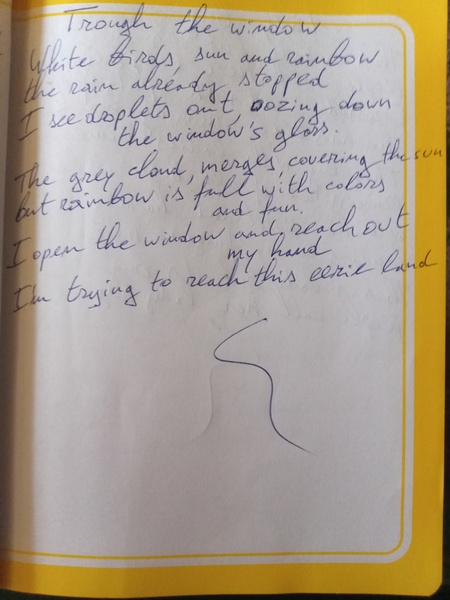 Trough the window
White birds, sun and rainbow
the rain already stopped
I see droplets out, oozing down
the window's glass.
The grey cloud, merges, covering the sun
but rainbow is full with colors
and fun.
I open the window and reach out
my hand
I'm trying to reach this eerie land